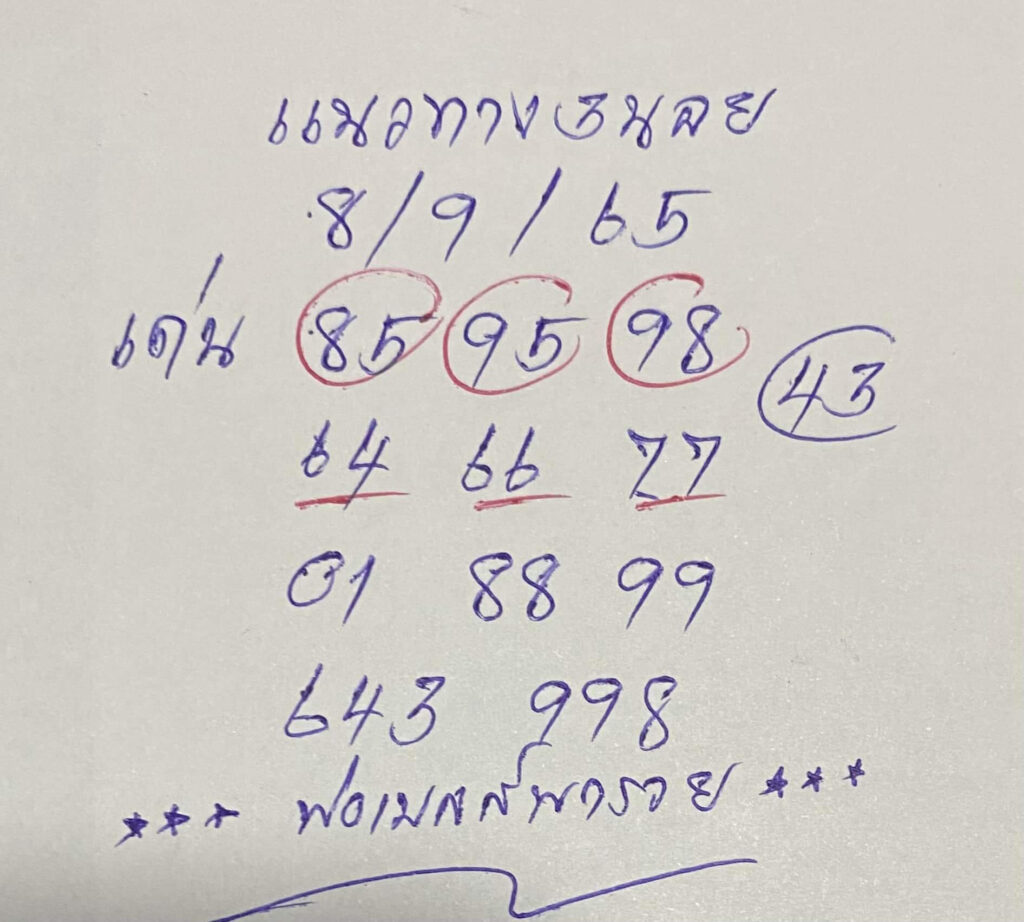 แนวทางฮานอย
8/9/65
เด่น 85 95 98
43
64 66 77
01 88 99
643 998
*** พ่อเบสส์พารวย ***